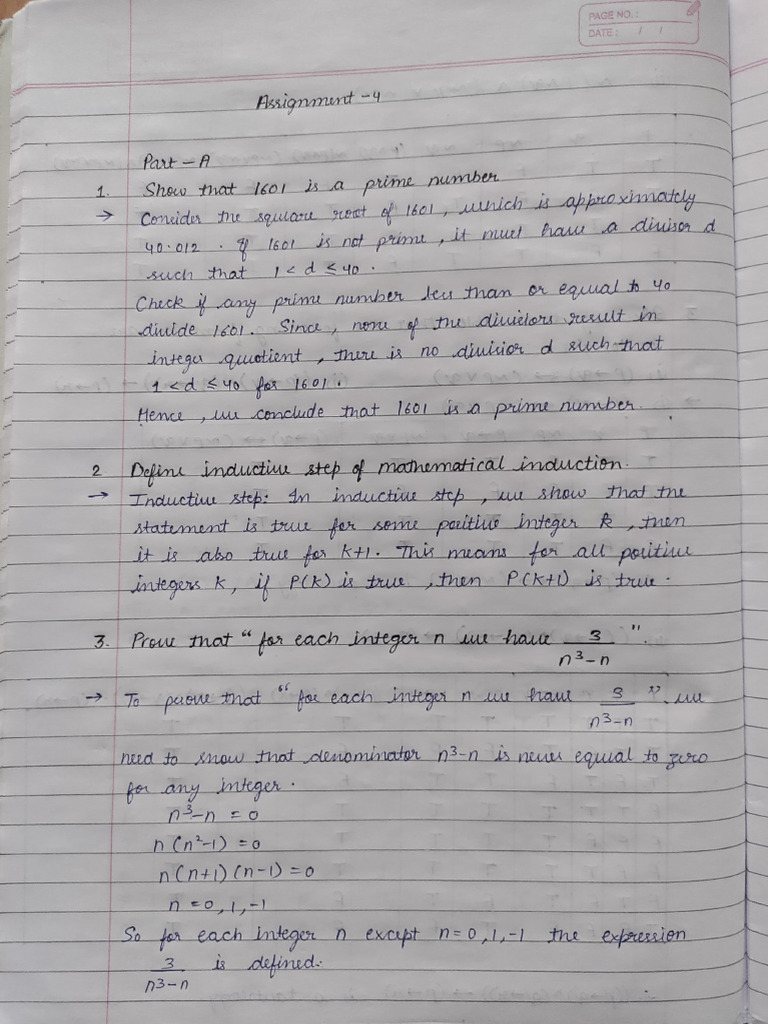 PAGE NO.:
DATE: / /
Assignment-4
Part-A
1. Show that 1601 is a prime number
→ Consider the square root of 1601, which is approximately
40.012. If 1601 is not prime, it must have a divisor d
such that 1 < d ≤ 40.
Check if any prime number less than or equal to 40
divide 1601. Since, none of the divisiors result in
integer quotient, there is no divisior d such that
1 < d ≤ 40 for 1601.
Hence, we conclude that 1601 is a prime number.
2 Define inductive step of mathematical induction.
→ Inductive step: In inductive step, we show that the
statement is true for some positive integer k, then
it is also true for k+1. This means for all positive
integers k, if P(k) is true, then P(k+1) is true.
3. Prove that "for each integer n we have 3/(n³-n)".
→ To prove that "for each integer n we have 3/(n³-n)". we
need to show that denominator n³-n is never equal to zero
for any integer.
n³-n = 0
n(n²-1) = 0
n(n+1)(n-1) = 0
n = 0,1,-1
So for each integer n except n=0,1,-1 the expression
3/(n³-n) is defined.